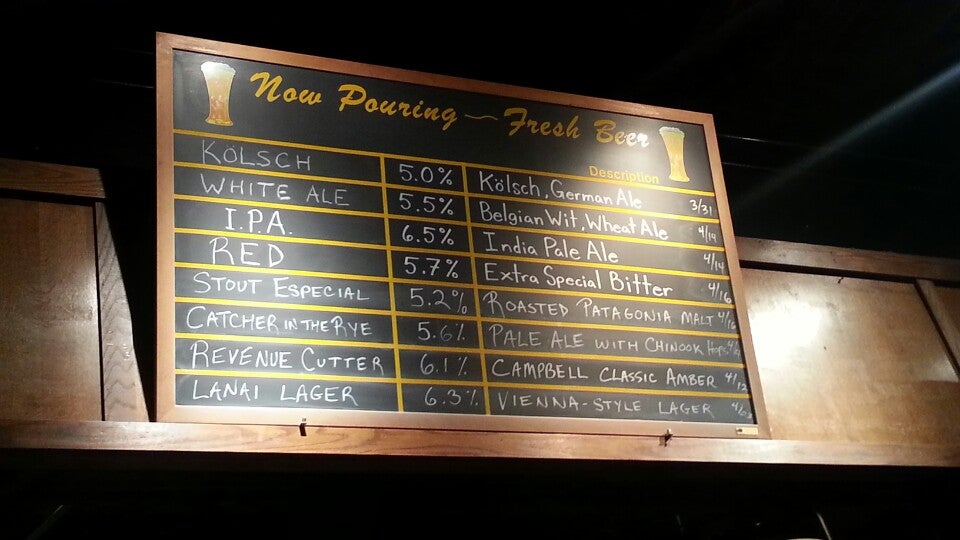 Now Pouring — Fresh Beer
Description
KÖLSCH 5.0% Kölsch, German Ale 3/31
WHITE ALE 5.5% Belgian Wit, Wheat Ale 4/19
I.P.A. 6.5% India Pale Ale 4/14
RED 5.7% Extra Special Bitter 4/16
STOUT ESPECIAL 5.2% ROASTED PATAGONIA MALT
CATCHER IN THE RYE 5.6% PALE ALE WITH CHINOOK Hops
REVENUE CUTTER 6.1% CAMPBELL CLASSIC AMBER 4/12
LANAI LAGER 6.3% VIENNA-STYLE LAGER